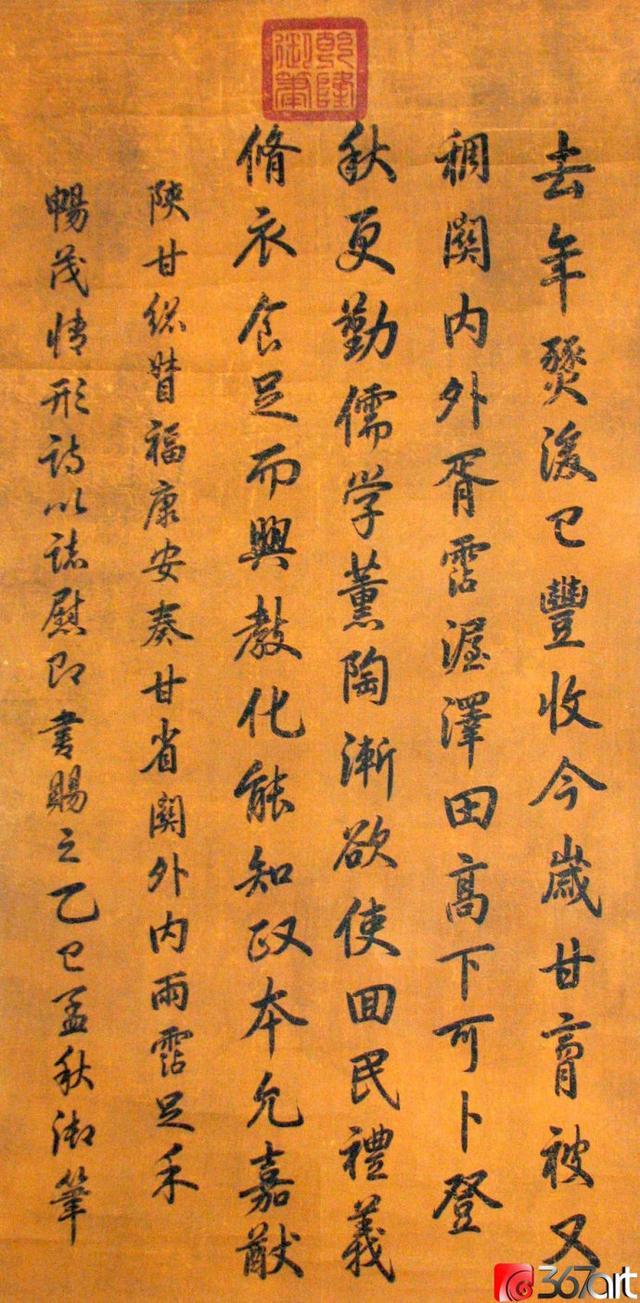 乾隆御筆
去年燹後已豐收今歲甘膏被又
稠關内外胥霑渥澤田高下可卜登
秋更勤儒学薰陶漸欲使回民禮義
脩衣食足而興教化能知政本允嘉猷
陝甘緫督福康安奏甘省關外内雨霑足禾
暢茂情形詩以誌慰即書賜之乙巳孟秋御筆
367art